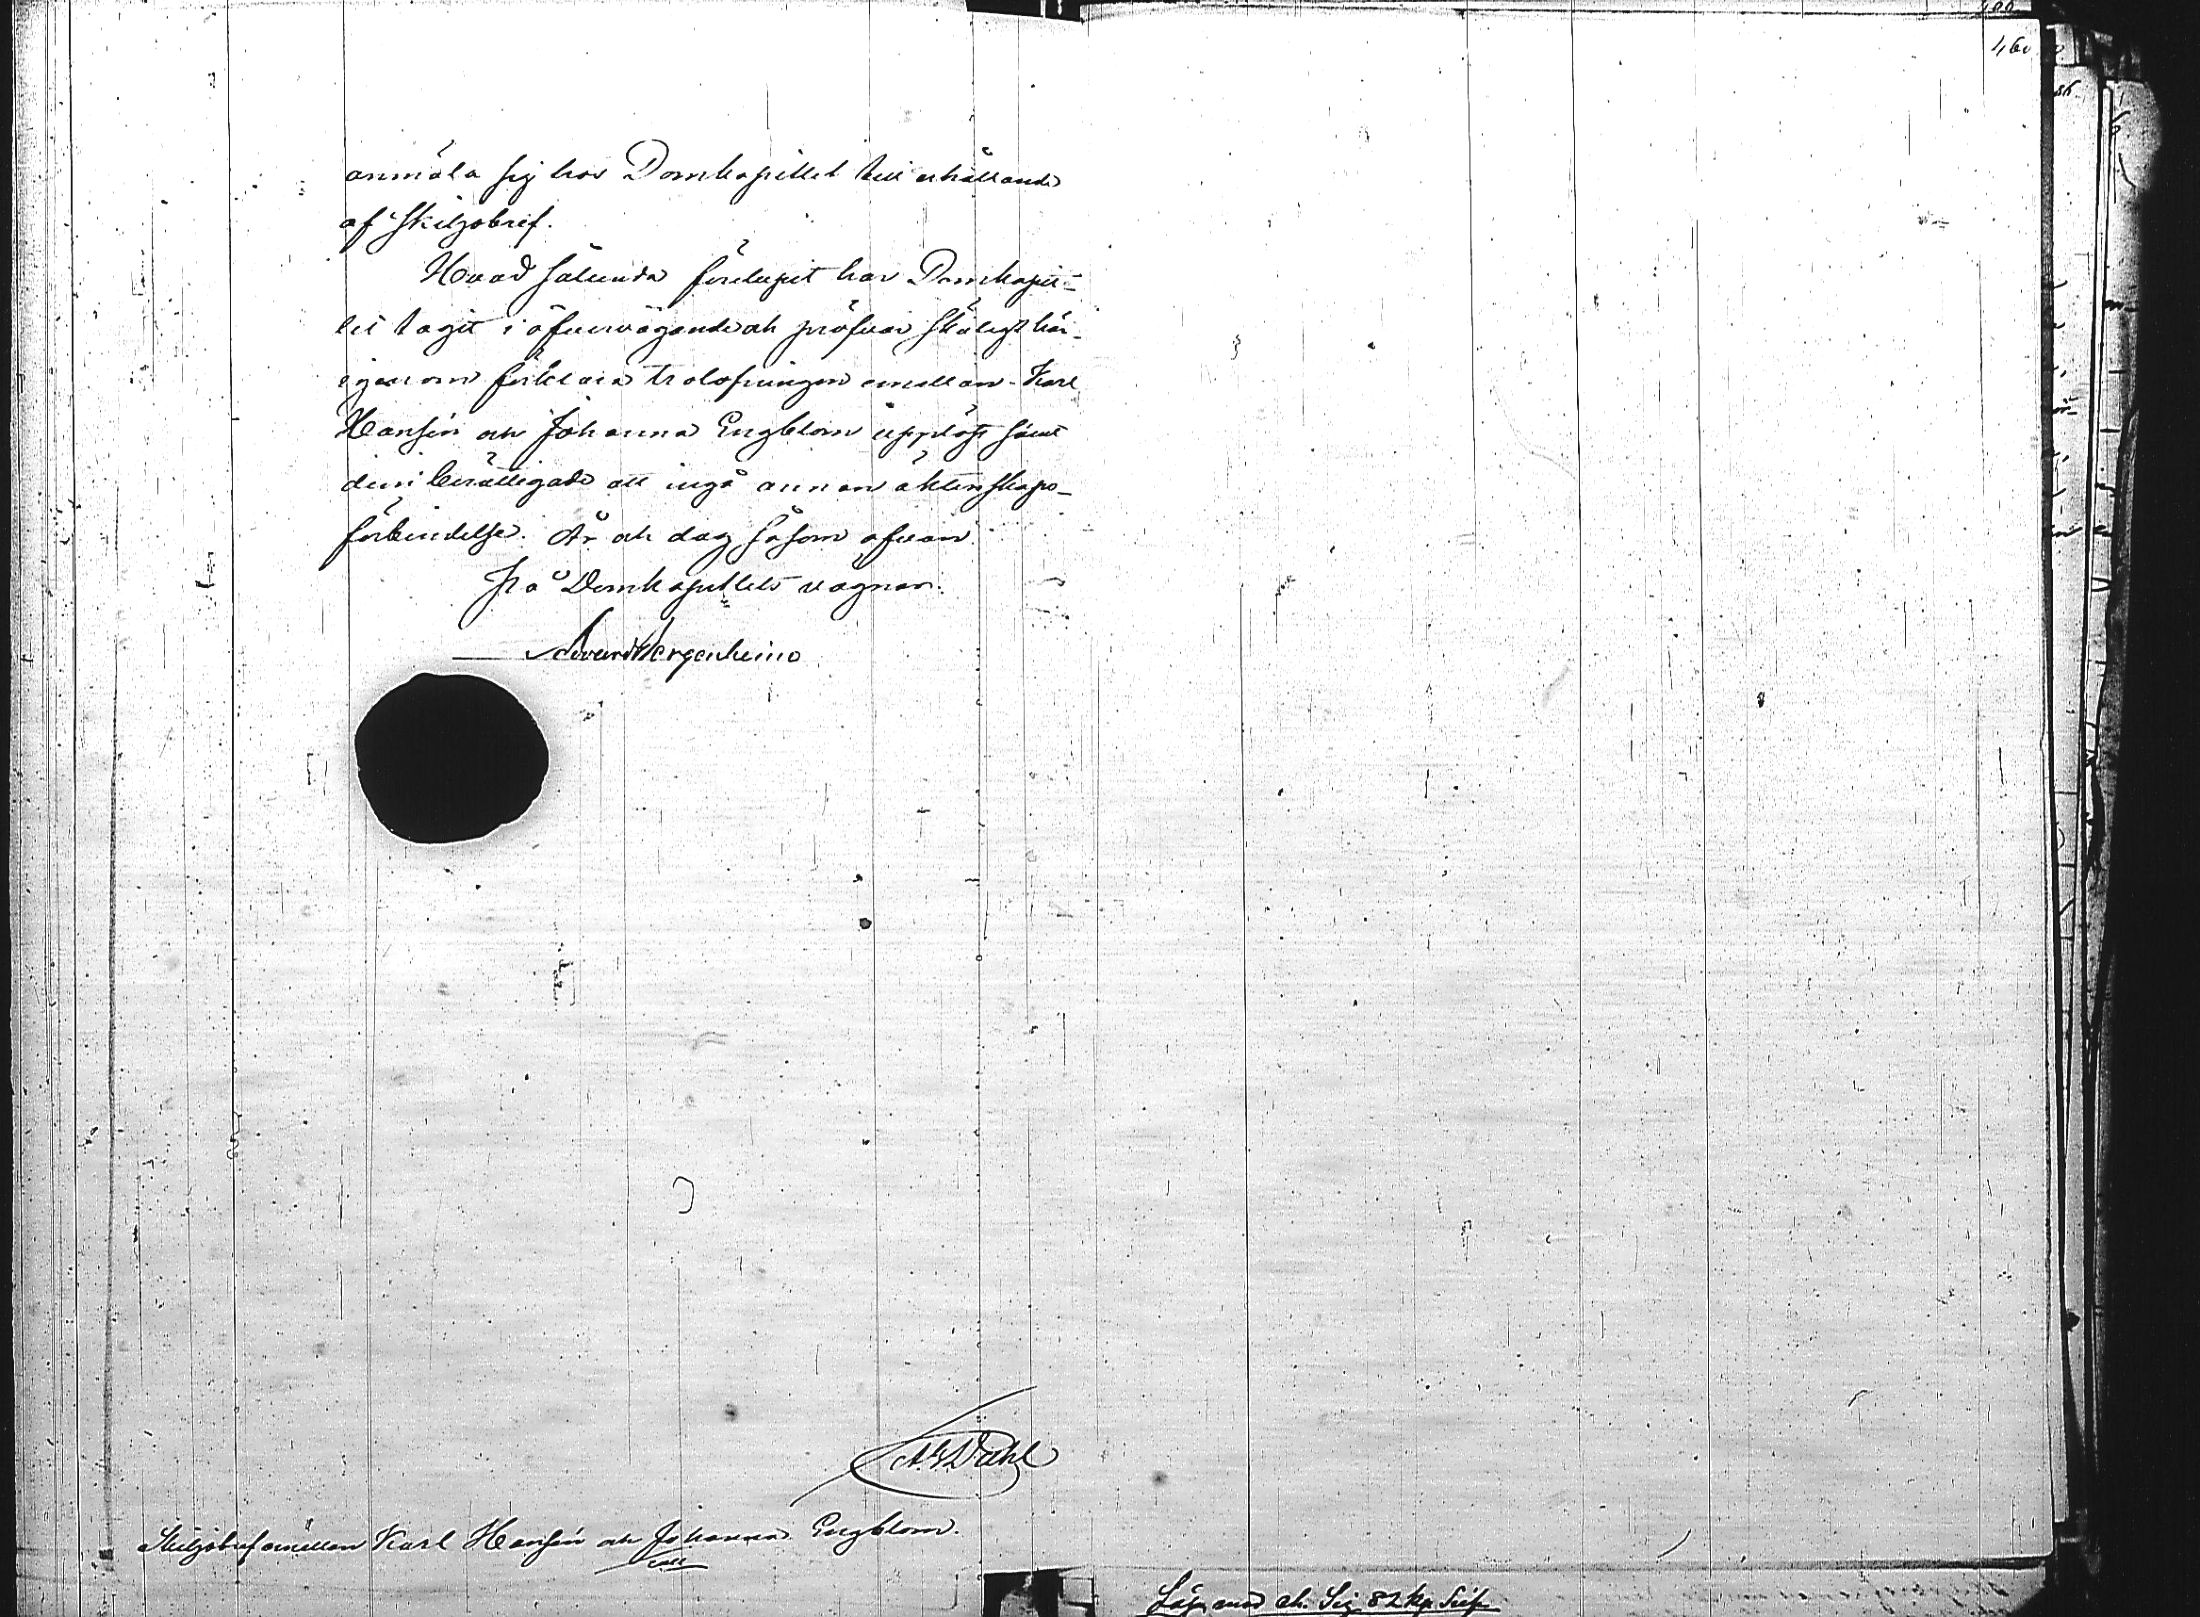 460
anmäla sig hos Domkapitlet till erhållande
af skiljobref.
Hvad sålunda förelupit har Domkapit-
let tagit i öfvervägande och pröfvar skäligt här-
igenom förklara trolofningen emellan Karl
Hansén och Johanna Engblom upplöst samt
dem berättigade att ingå annan äktenskaps-
förbindelse. År och dag såsom ofvan.
På Domkapitlets vägnar.
Edvard Bergenheim
Dahl
Skiljobref emellan Karl Hansén och Johanna Engblom.